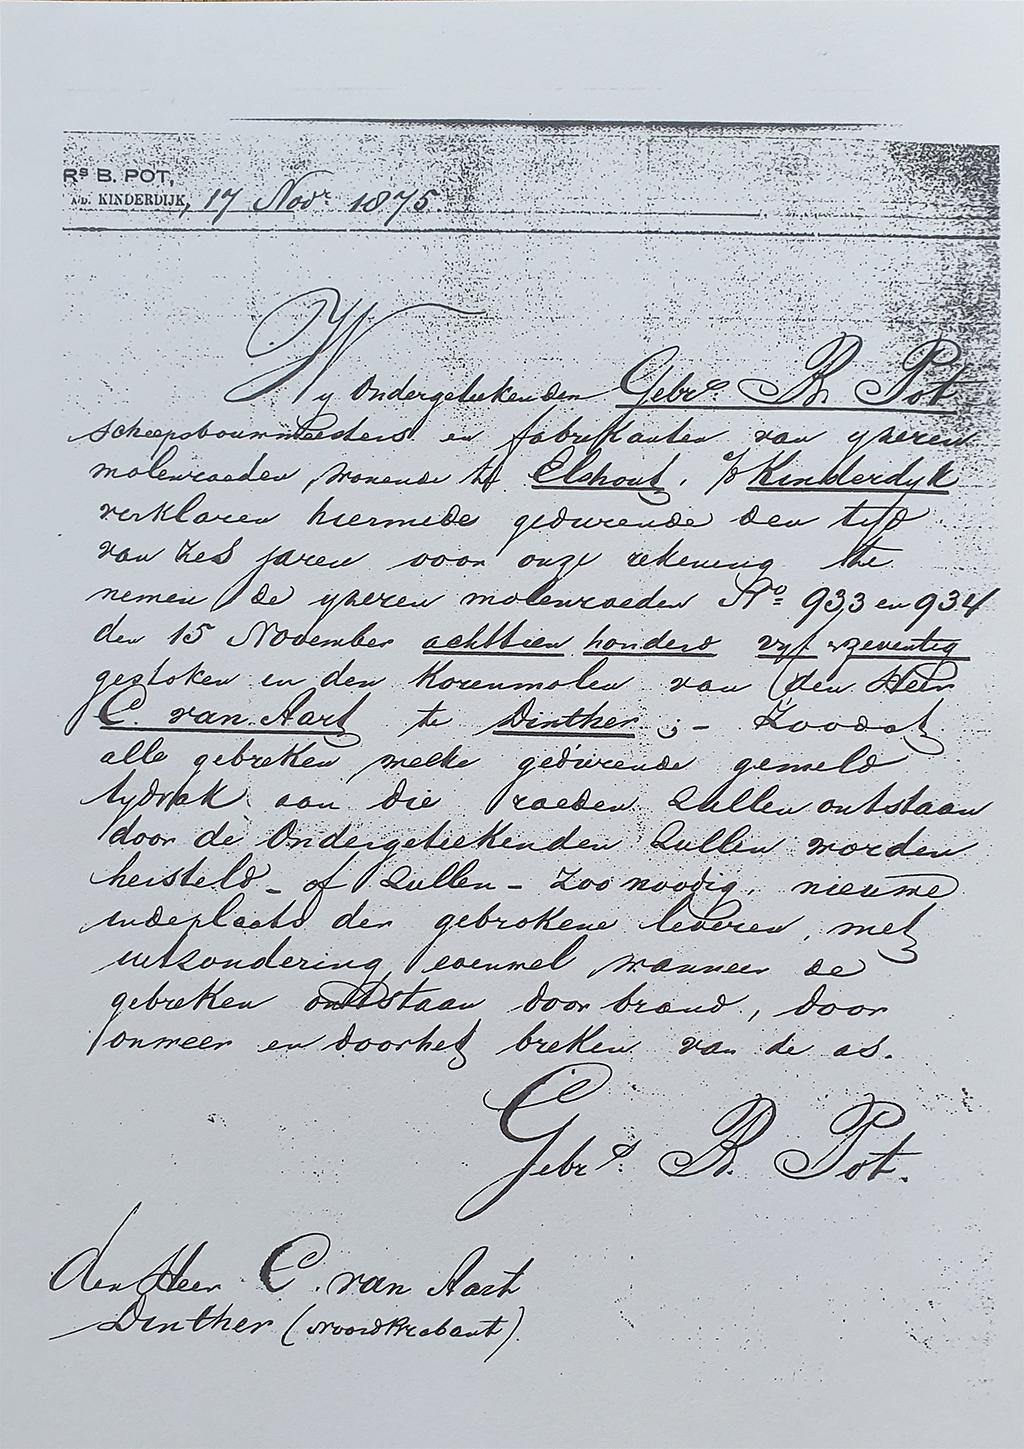 Rs B. POT,
A/D. KINDERDIJK, 17 Novr 1875.
Wy Ondergeteekenden Gebrs. B. Pot
scheepsbouwmeesters en fabrikanten van yzeren
molenroeden, wonende te Elshout, a/d Kinderdyk
verklaren hiermede gedurende den tijd
van zes jaren voor onze rekening te
nemen de yzeren molenroeden No 933 en 934
den 15 November achttien honderd vyf en zeventig
gestoken in den Korenmolen van den Heer
C. van Aart te Dinther ;- Zoodat
alle gebreken, welke gedurende gemeld
tydvak aan die roeden zullen ontstaan
door de Ondergeteekenden zullen worden
hersteld - of zullen - zoo noodig, nieuwe
indeplaats der gebrokene leveren, met
uitzondering, evenwel, wanneer de
gebreken ontstaan door brand, door
onweer en doorhet breken van de as.
Gebrs. B. Pot.
den Heer C. van Aart
Dinther (NoordBrabant).